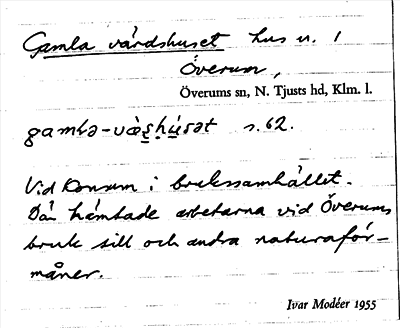 Gamla värdshuset hus n. 1
Överum,
Överums sn, N. Tjusts hd, Klm. l.
gamlə-væ̀ṣḥụ́sət s. 62.
Vid Konsum i brukssamhället.
Där hämtade arbetarna vid Överums
bruk sill och andra naturaför-
måner.
Ivar Modéer 1955